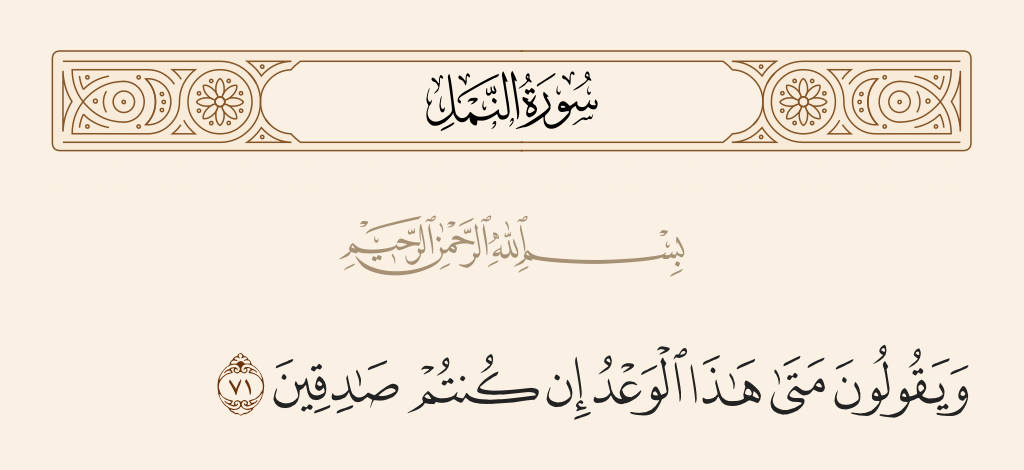 سُورَةُ النَّمْلِ
بِسْمِ ٱللَّهِ ٱلرَّحْمَٰنِ ٱلرَّحِيمِ
وَيَقُولُونَ مَتَىٰ هَـٰذَا ٱلْوَعْدُ إِن كُنتُمْ صَـٰدِقِينَ ٧١